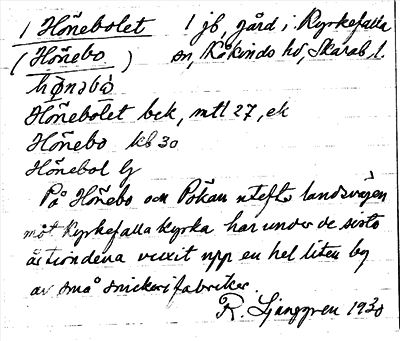 1 Hönebolet 1 jb. gård i Kyrkefalla
(Hönebo) sn, Kåkinds hd, Skarab. l.
hø̀nəbò
Hönebolet bck, mtl 27, ek
Hönebo kb 30
Hönebol G
På Hönebo och Pökan utefter landsvägen
mot Kyrkefalla kyrka har under de sista
årtiondena vuxit upp en hel liten by
av små snickerifabriker.
R. Ljunggren 1930